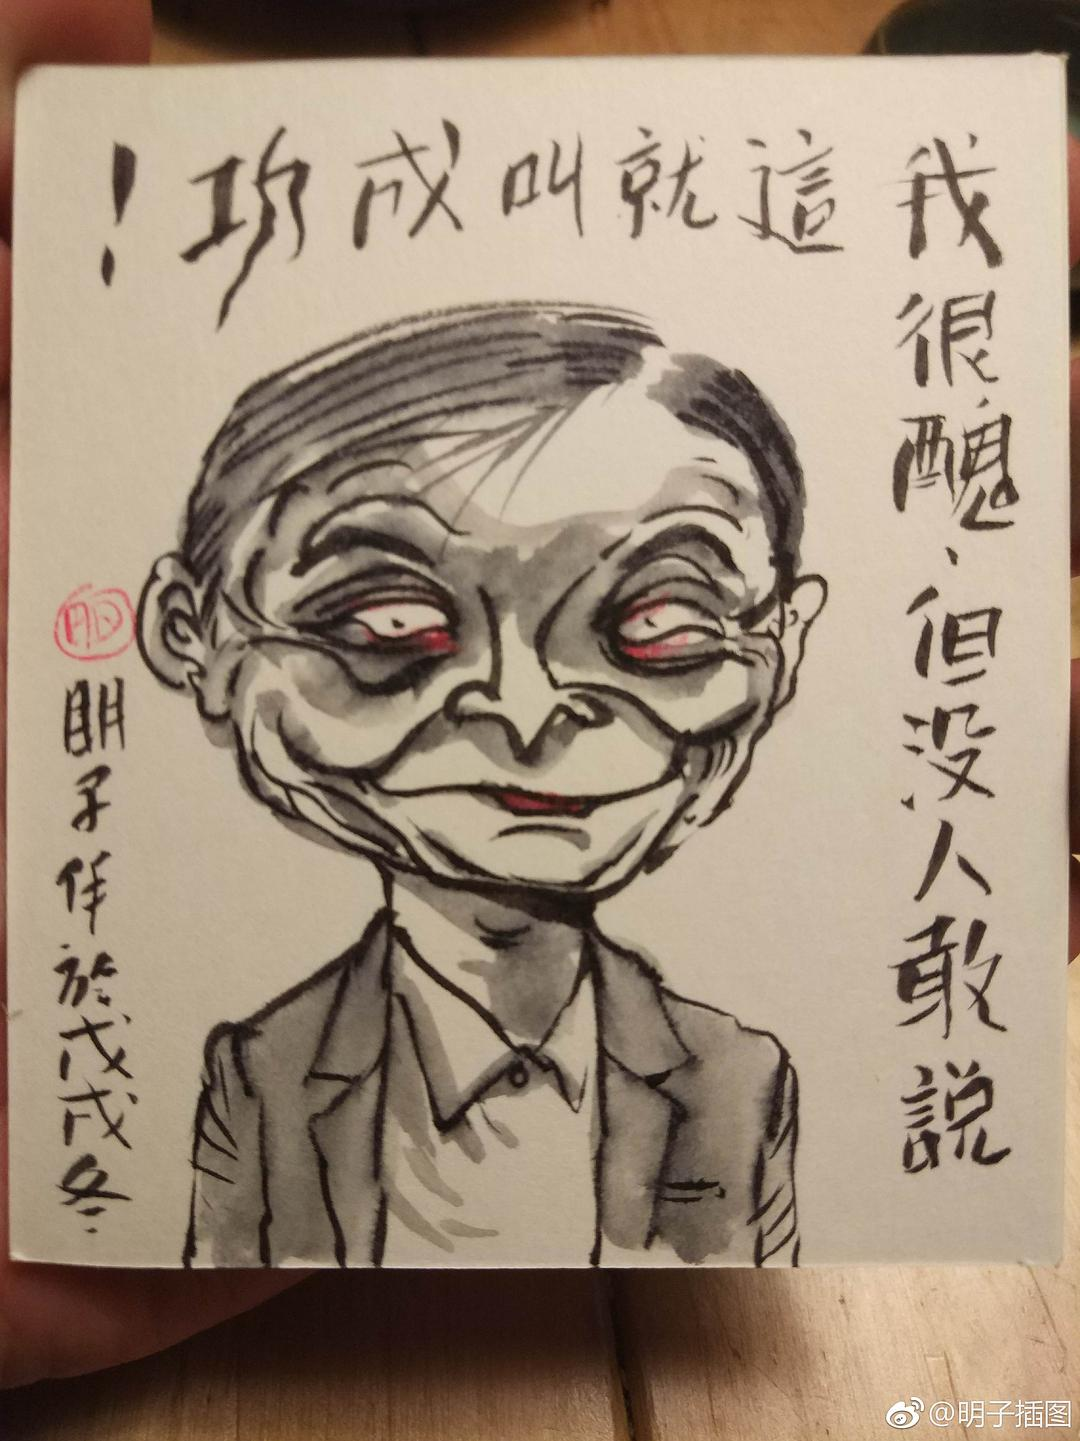 我很醜、但没人敢説
這就叫成功！
明
明子作於戊戌冬
@明子插图